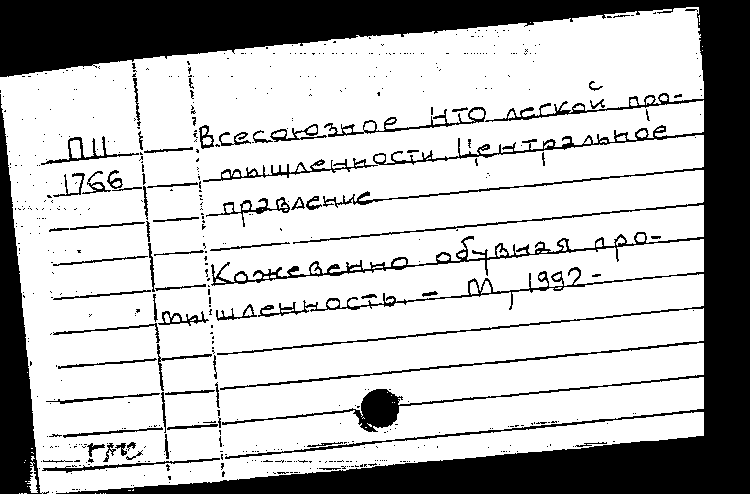 П11
1766
Всесоюзное НТО легкой про-
мышленности. Центральное
правление
Кожевенно обувная про-
мышленность. - М, 1992-